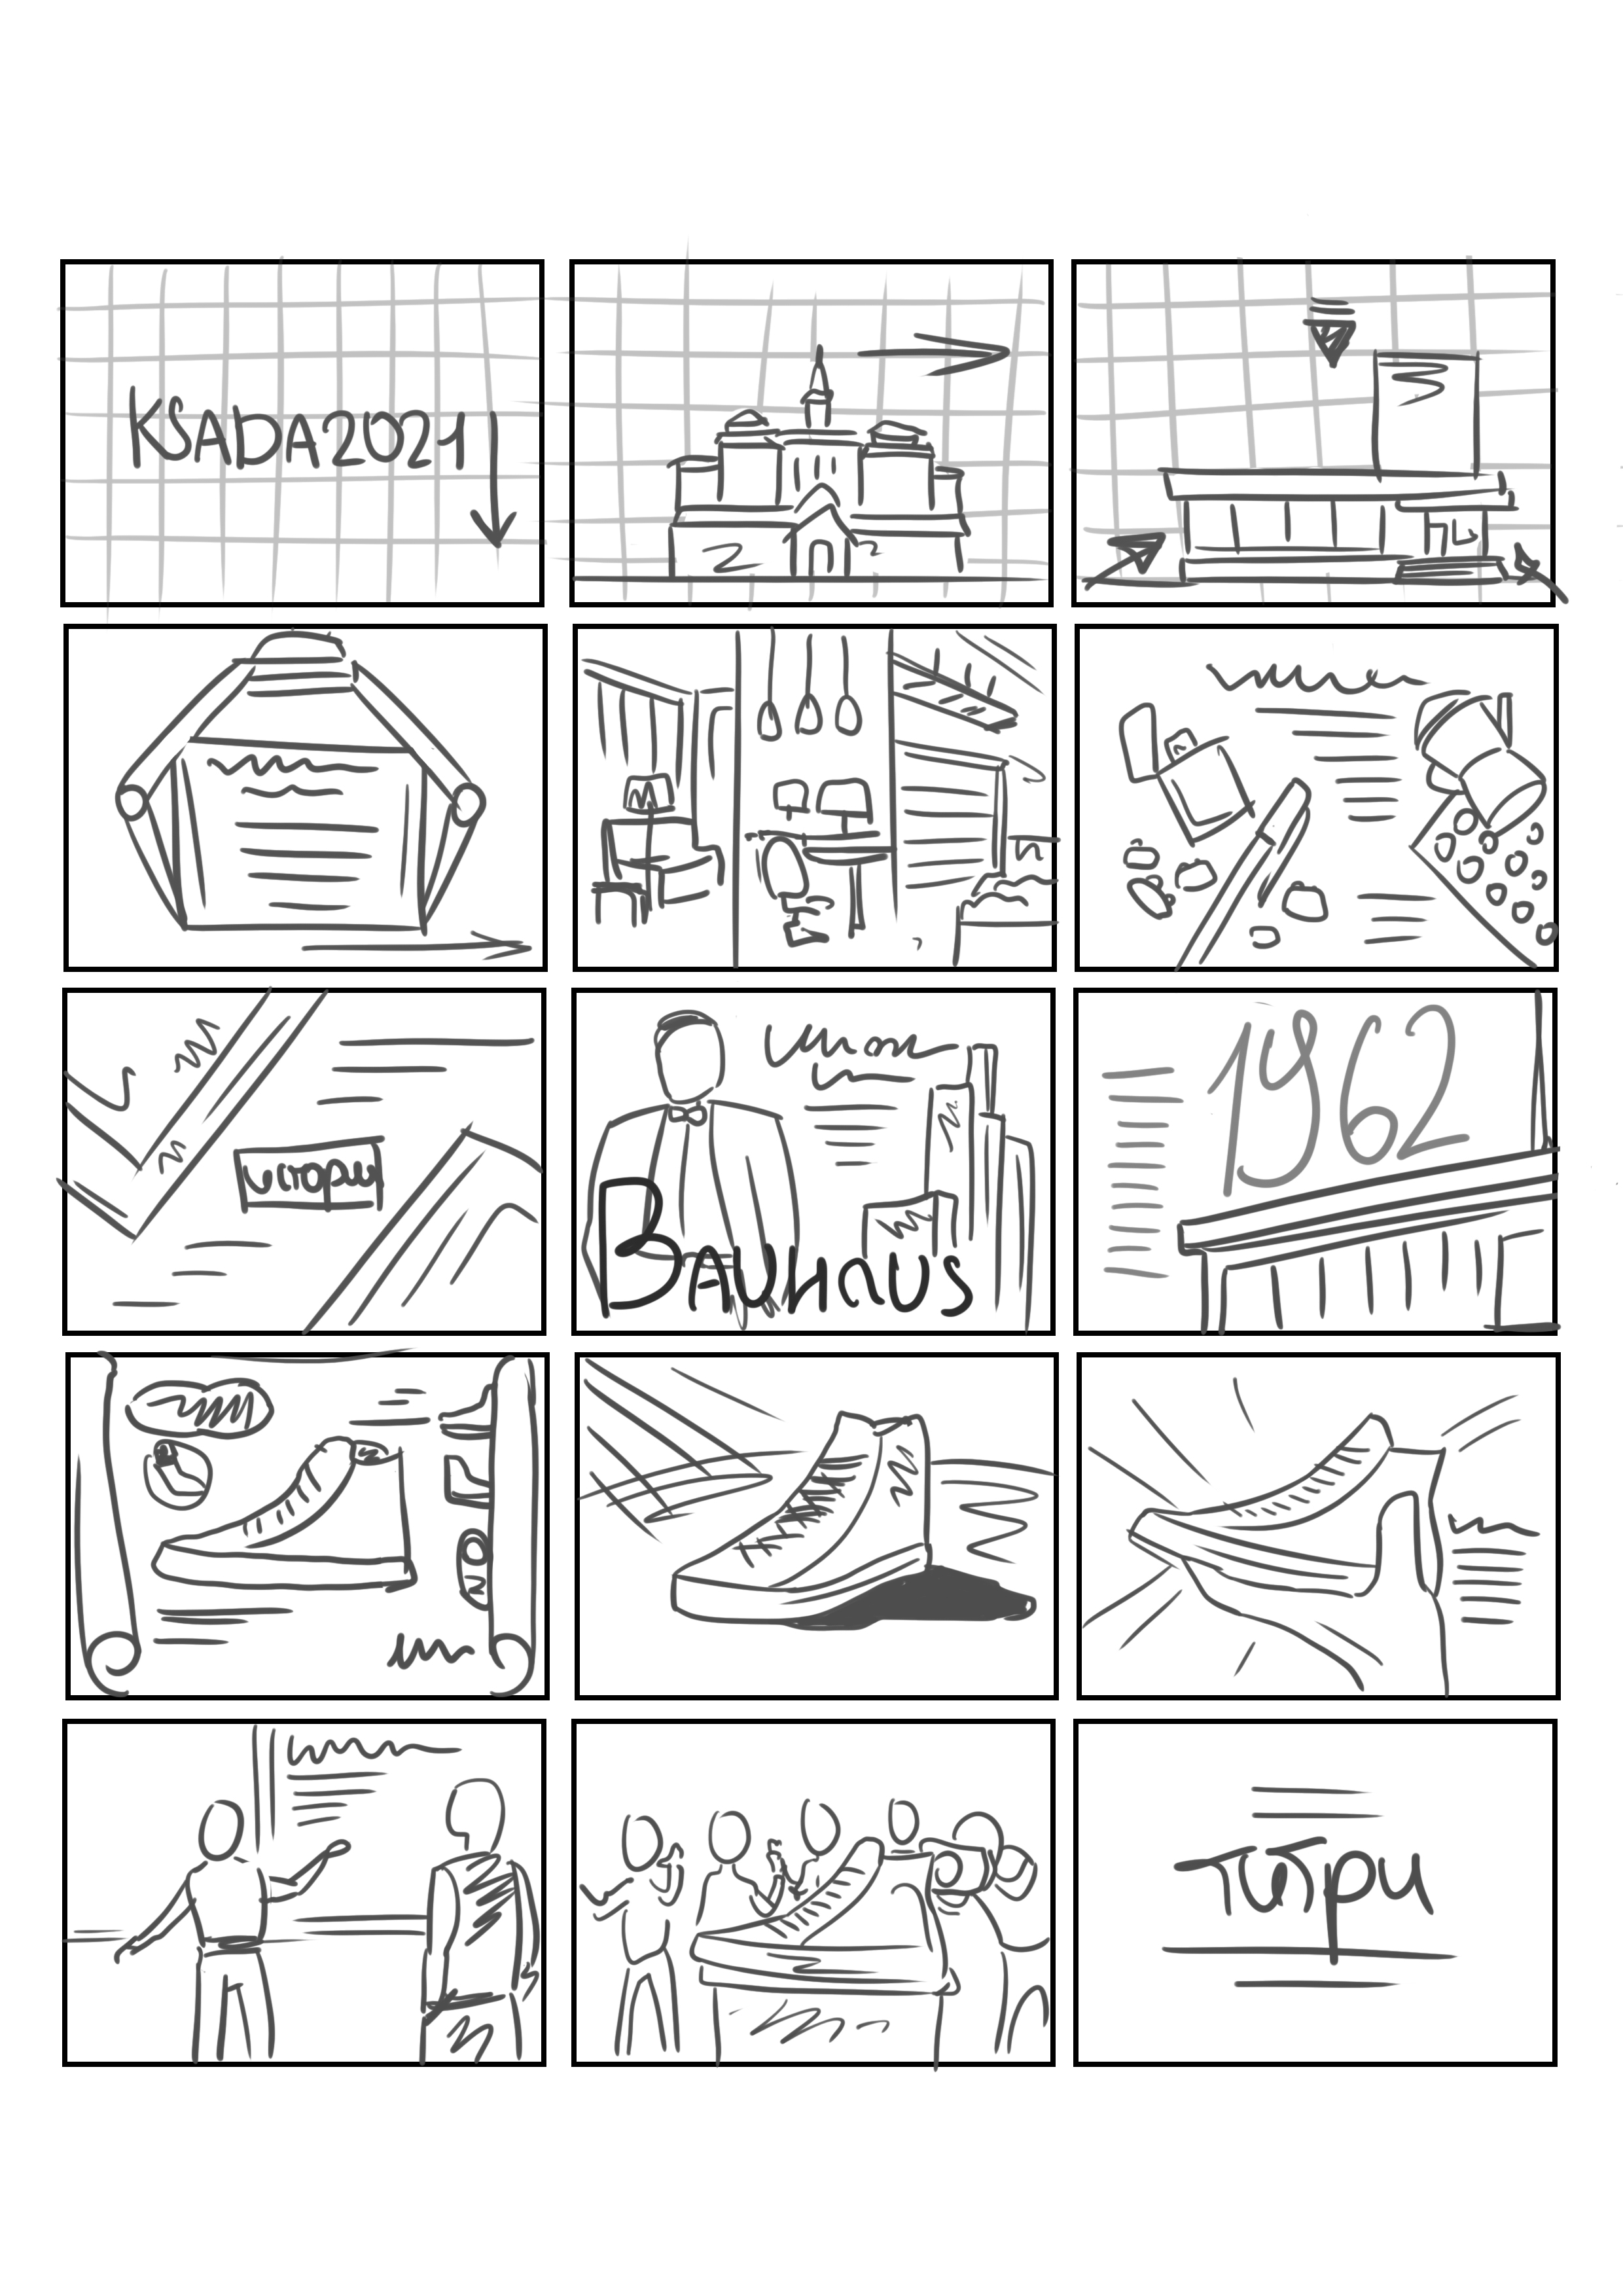 KSADA2021
історія
BAUHAUS
1962
Титри